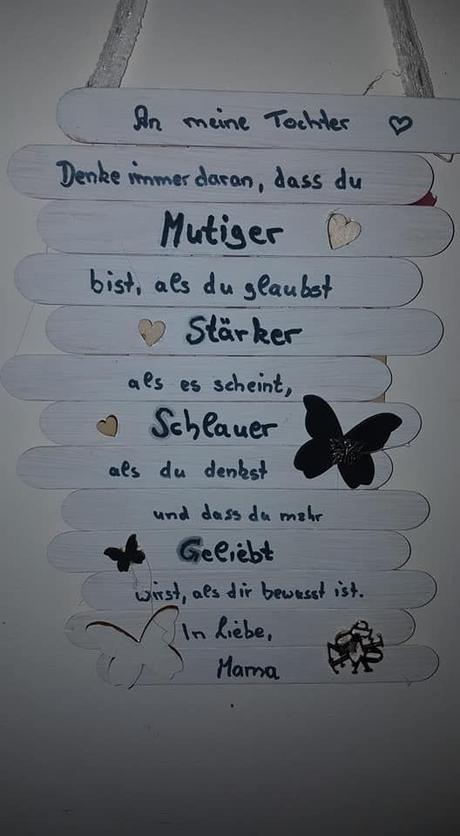 An meine Tochter ♡
Denke immer daran, dass du
Mutiger
bist, als du glaubst
Stärker
als es scheint,
Schlauer
als du denkst
und dass du mehr
Geliebt
wirst, als dir bewusst ist.
In Liebe,
Mama